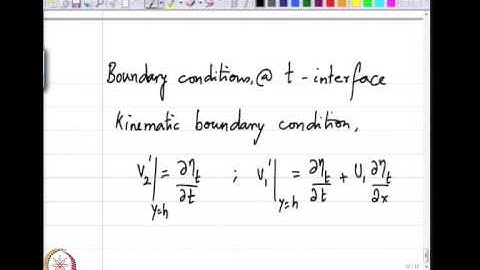 Boundary conditions, @ t - interface
Kinematic boundary condition,
V₂'|_{y=h} = ∂η_t/∂t ; V₁'|_{y=h} = ∂η_t/∂t + U₁ ∂η_t/∂x